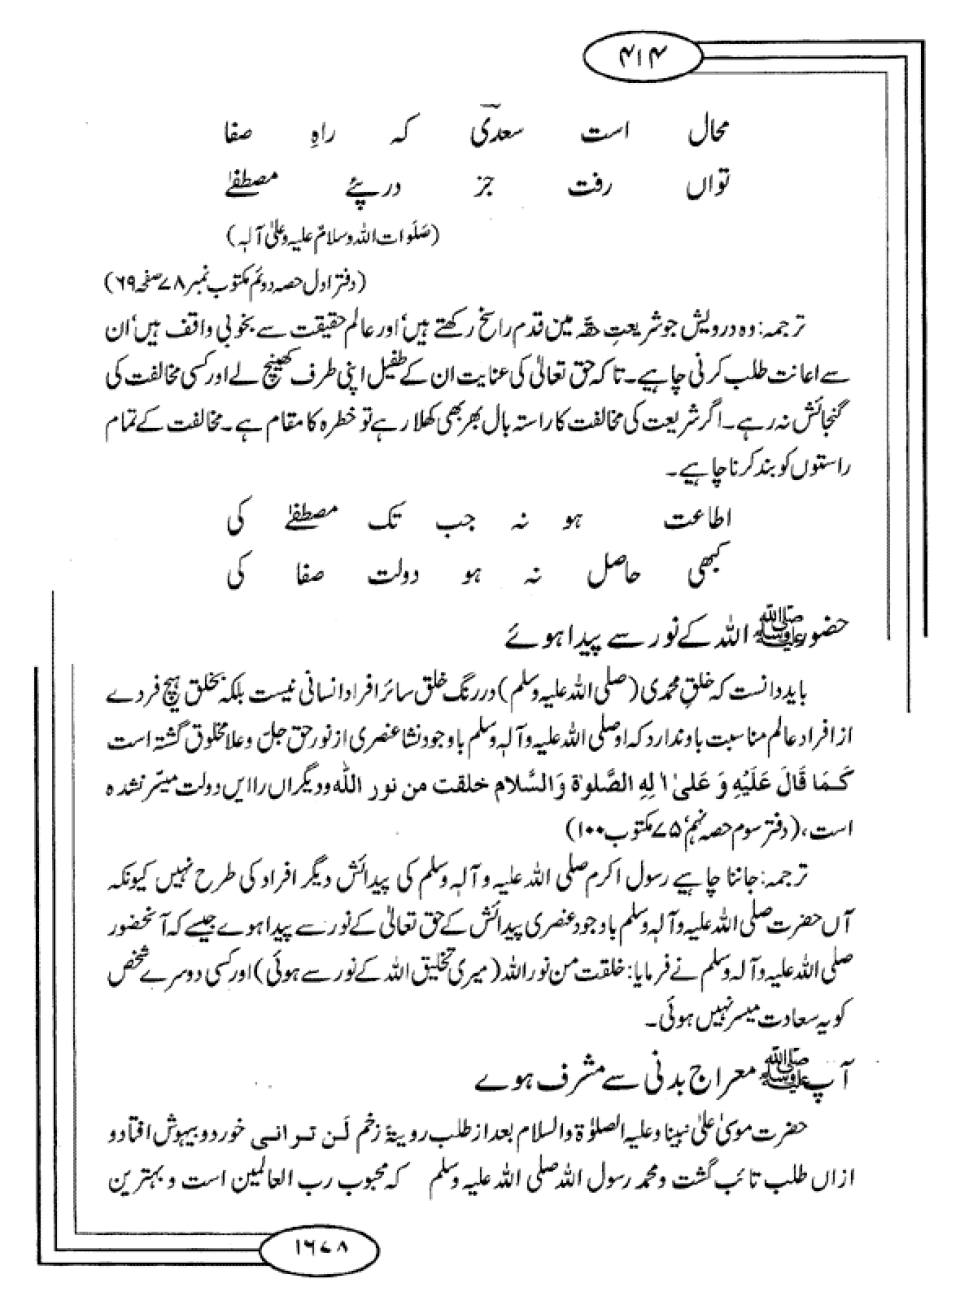 ۴۱۴
محال است سعدیؒ کہ راہِ صفا
تواں رفت جز درپئے مصطفےٰ
(صَلَوات اللہ وسلامٌ علیہ وعلیٰ آلہٖ)
(دفتر اول حصہ دوئم مکتوب نمبر ۷۸ صفحہ ۶۹)
ترجمہ: وہ درویش جو شریعتِ حقہ میں قدم راسخ رکھتے ہیں٬ اور عالم حقیقت سے بخوبی واقف ہیں٬ ان
سے اعانت طلب کرنی چاہیے۔ تاکہ حق تعالیٰ کی عنایت ان کے طفیل اپنی طرف کھینچ لے اور کسی مخالفت کی
گنجائش نہ رہے۔ اگر شریعت کی مخالفت کا راستہ بال بھر بھی کھلا رہے تو خطرہ کا مقام ہے۔ مخالفت کے تمام
راستوں کو بند کرنا چاہیے۔
اطاعت ہو نہ جب تک مصطفےٰ کی
کبھی حاصل نہ ہو دولت صفا کی
حضور ﷺ اللہ کے نور سے پیدا ہوئے
باید دانست کہ خلقِ محمدی (صلی اللہ علیہ وسلم) در رنگ خلق سائر افراد انسانی نیست بلکہ بخلق ہیچ فردے
از افراد عالم مناسبت باو ندارد کہ او صلی اللہ علیہ و آلہٖ وسلم باوجود نشا عنصری از نور حق جلّ و علا مخلوق گشتہ است
کَمَا قَالَ عَلَیْهِ وَ عَلیٰ اٰلِهِ الصَّلوٰة وَالسَّلام خلقت من نور اللّٰه و دیگراں را ایں دولت میسّر نشدہ
است، (دفتر سوم حصہ نہم٬ ۷۵ مکتوب ۱۰۰)
ترجمہ: جاننا چاہیے رسول اکرم صلی اللہ علیہ و آلہٖ وسلم کی پیدائش دیگر افراد کی طرح نہیں کیونکہ
آں حضرت صلی اللہ علیہ و آلہٖ وسلم باوجود عنصری پیدائش کے حق تعالیٰ کے نور سے پیدا ہوے جیسے کہ آنحضور
صلی اللہ علیہ و آلہٖ وسلم نے فرمایا: خلقت من نور اللہ (میری تخلیق اللہ کے نور سے ہوئی) اور کسی دوسرے شخص
کو یہ سعادت میسر نہیں ہوئی۔
آپ ﷺ معراج بدنی سے مشرف ہوے
حضرت موسیٰ علیٰ نبینا و علیہ الصلوٰۃ والسلام بعد از طلب رویۃ زخم لَن ترانی خورد و بیہوش افتاد و
ازاں طلب تائب گشت و محمد رسول اللہ صلی اللہ علیہ وسلم کہ محبوب رب العالمین است و بہترین
۱۶۷۸